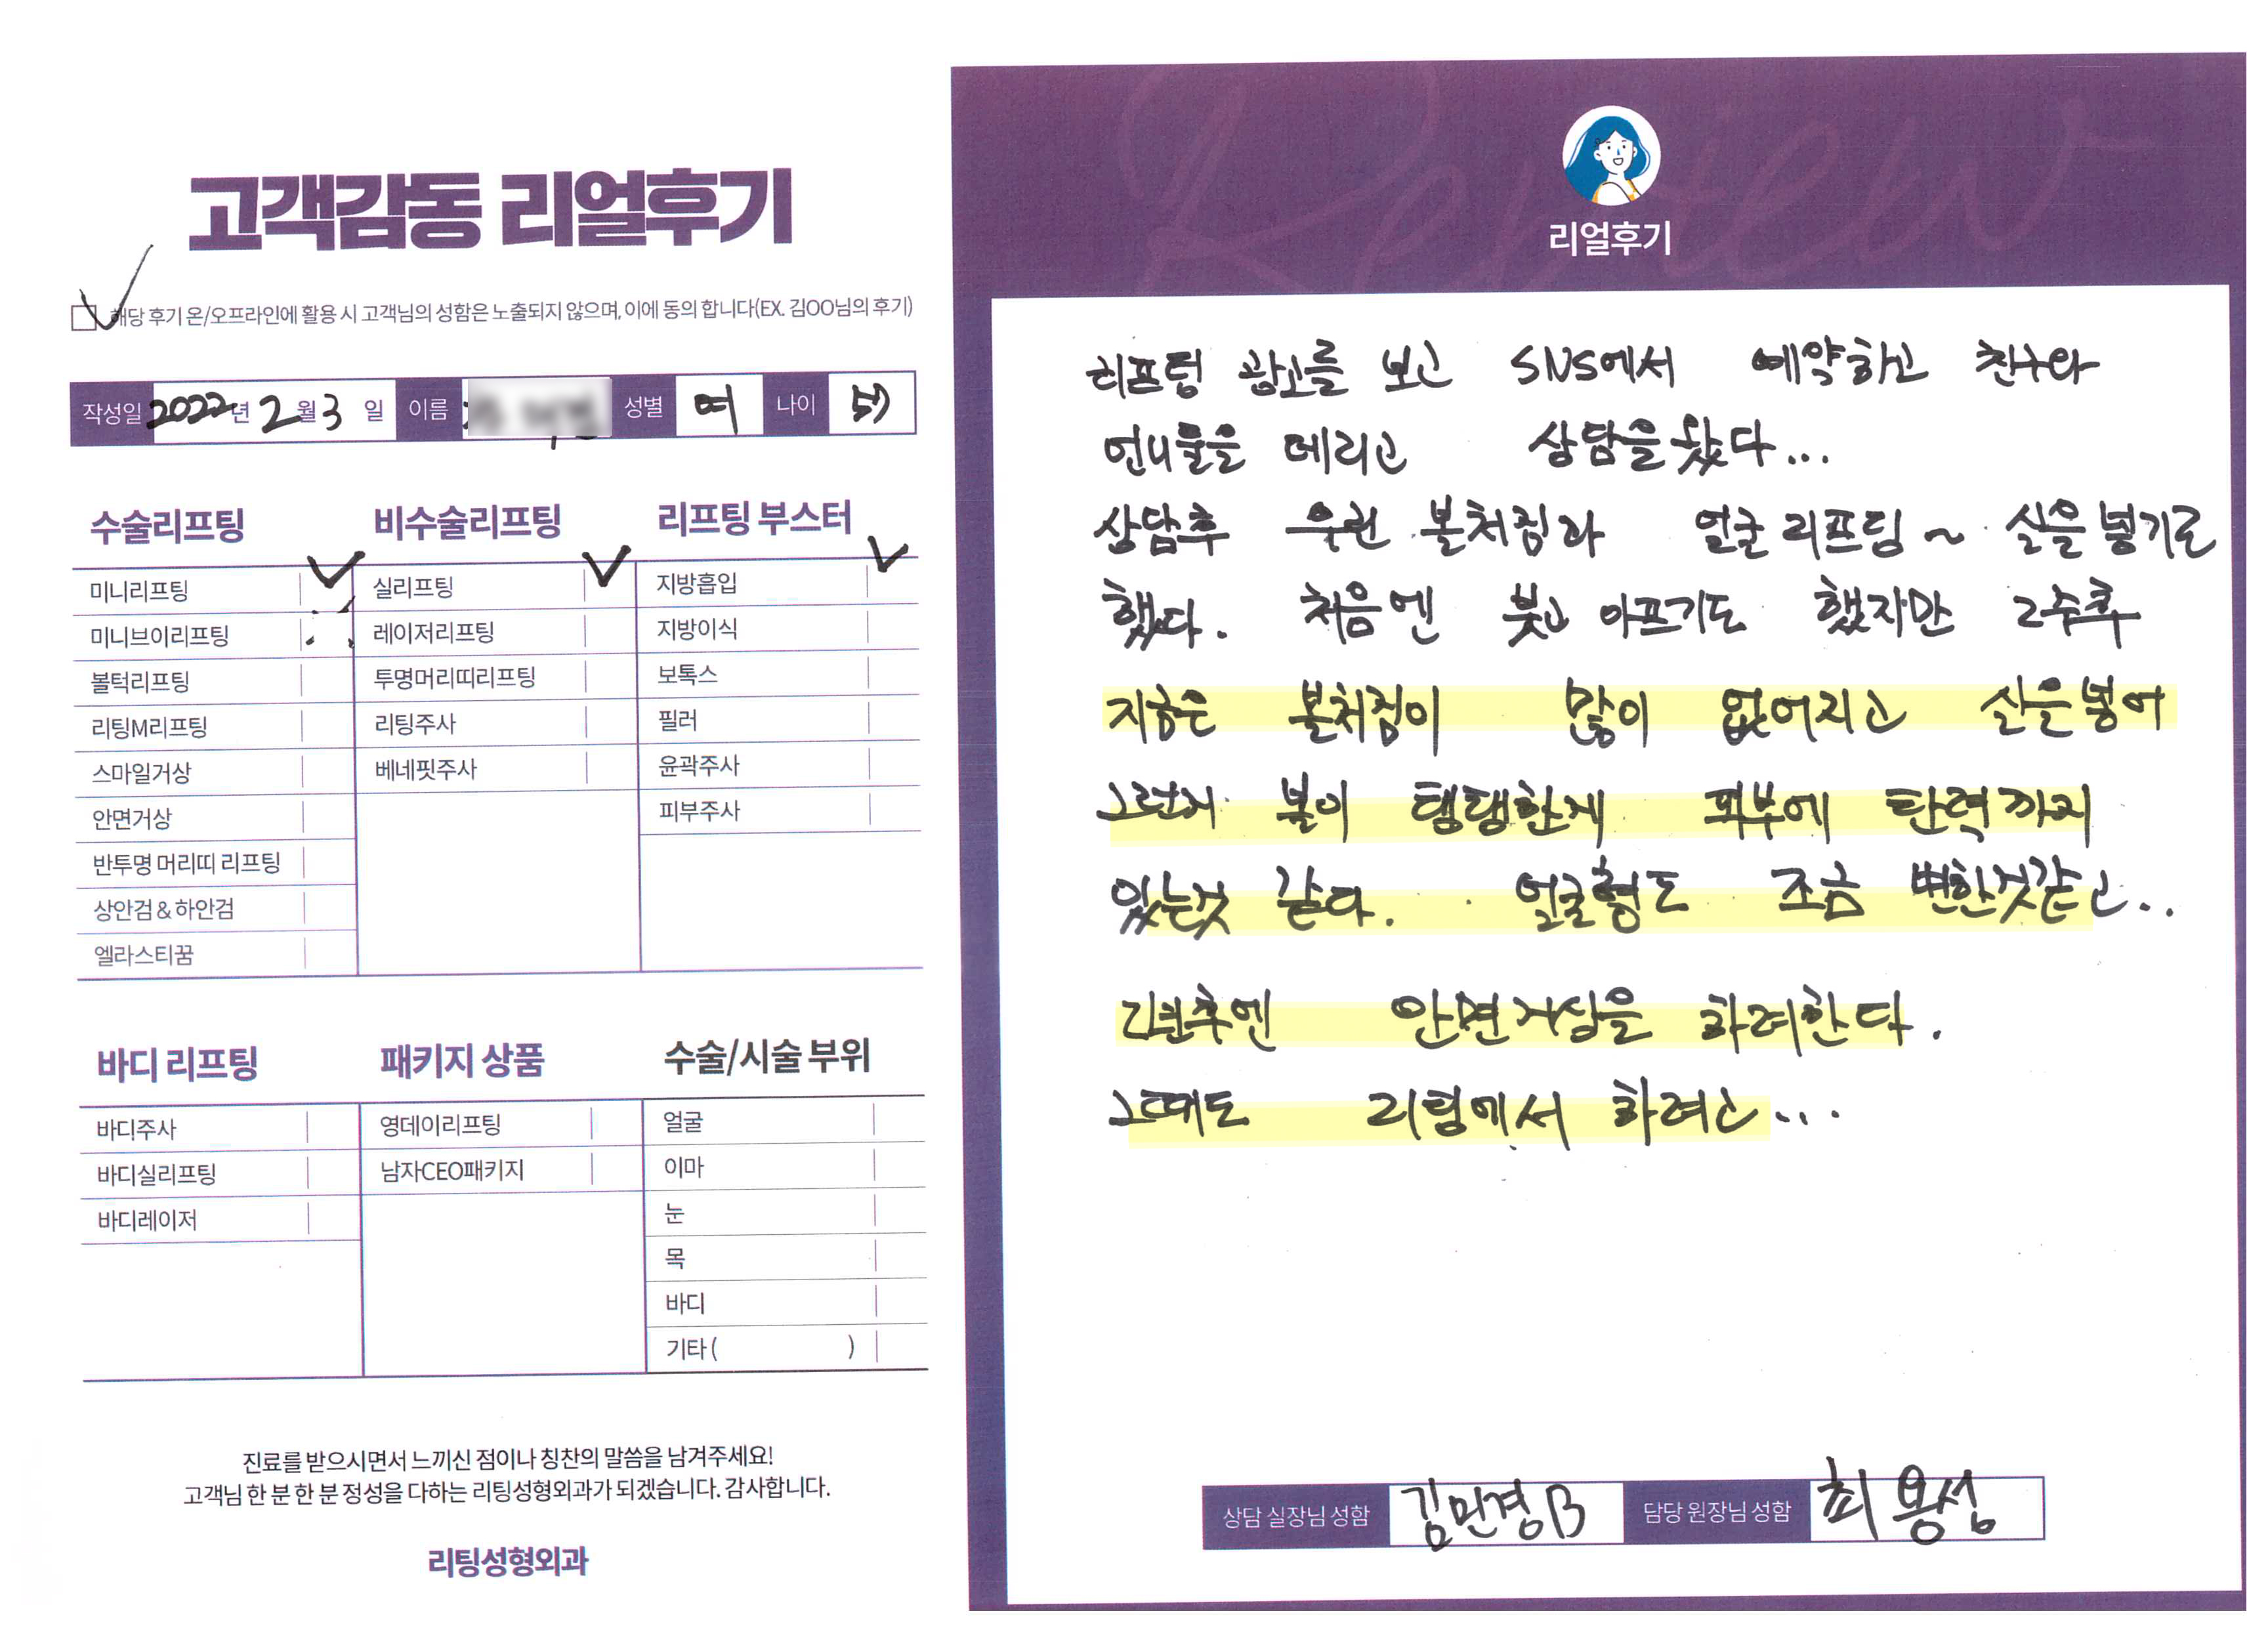 고객감동 리얼후기
해당 후기 온/오프라인에 활용 시 고객님의 성함은 노출되지 않으며, 이에 동의 합니다(EX. 김OO님의 후기)
작성일 2022년 2월 3일 이름 성별 여 나이
수술리프팅 비수술리프팅 리프팅 부스터
미니리프팅 실리프팅 지방흡입
미니브이리프팅 레이저리프팅 지방이식
볼턱리프팅 투명머리띠리프팅 보톡스
리팅M리프팅 리팅주사 필러
스마일거상 베네핏주사 윤곽주사
안면거상 피부주사
반투명 머리띠 리프팅
상안검 & 하안검
엘라스티꿈
바디 리프팅 패키지 상품 수술/시술 부위
바디주사 영데이리프팅 얼굴
바디실리프팅 남자CEO패키지 이마
바디레이저 눈
목
바디
기타 ( )
진료를 받으시면서 느끼신 점이나 칭찬의 말씀을 남겨주세요!
고객님 한 분 한 분 정성을 다하는 리팅성형외과가 되겠습니다. 감사합니다.
리팅성형외과
Review
리얼후기
리프팅 광고를 보고 SNS에서 예약하고 친구와
언니들을 데리고 상담을 왔다...
상담후 우선 볼처짐과 얼굴리프팅~ 실을 넣기로
했다. 처음엔 붓고 아프기도 했지만 2주후
지금은 볼처짐이 많이 없어지고 실을넣어
그런지 볼이 탱탱한게 피부에 탄력까지
있는것 같다. 얼굴형도 조금 변한것같고..
2년후엔 안면거상을 하려한다.
그때도 리팅에서 하려고...
상담 실장님 성함 김민경B 담당 원장님 성함 최용성